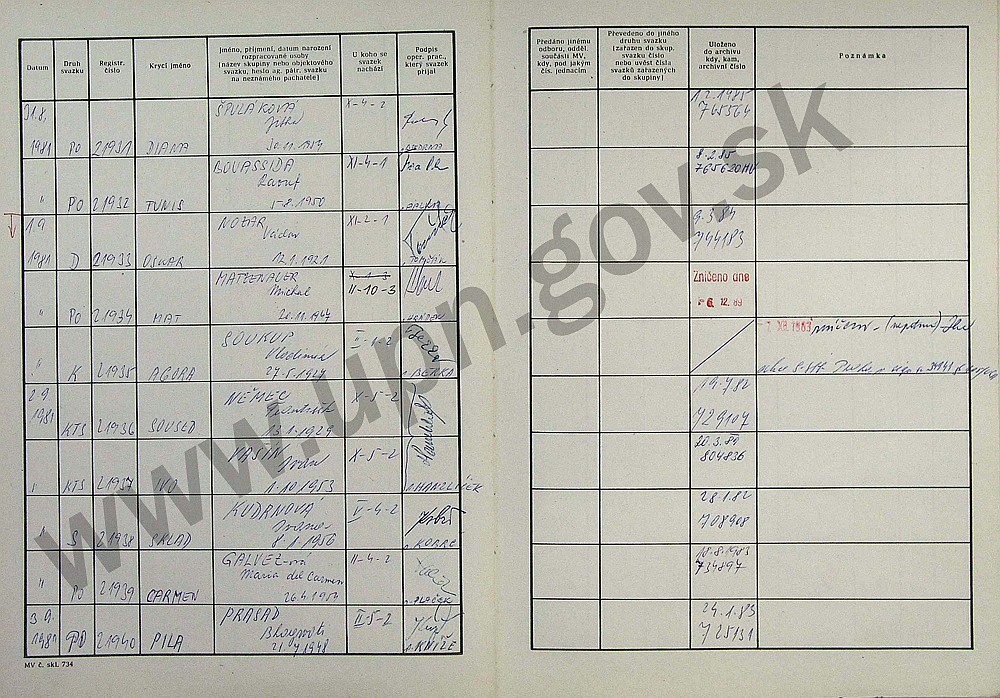 Datum
Druh svazku
Registr. číslo
Krycí jméno
Jméno, příjmení, datum narození
rozpracované osoby
(název skupiny nebo objektového
svazku, heslo ag. pátr. svazku
na neznámého pachatele)
U koho se svazek nachází
Podpis
oper. prac.,
který svazek
přijal
Předáno jinému
odboru, odděl.
součásti MV,
kdy, pod jakým
čís. jednacím
Převedeno do jiného
druhu svazku
(zařazen do skup.
svazku číslo
nebo uvést čísla
svazků zařazených
do skupiny)
Uloženo
do archivu
kdy, kam,
archivní číslo
Poznámka
31.8. ŠPULÁKOVÁ X-4-2 1.2.1985
Jitka 765564
1981 PO 21931 DIANA 30.11.1954
BOUASSIDA XI-4-1 8.2.85
Raouf 765620 MV
" PO 21932 TUNIS 1-8.1950
1.9. NOZAR XI-2-1 9.3.84
Václav 744183
1981 D 21933 OSKAR 12.1.1921
MATZENAUER X-1-3 Zničeno dne
Michal II-10-3 6. 12. 89
" PO 21934 MAT 20.11.1947
SOUKUP II-1-2 XII. 1983
Vladimír
" K 21935 AGORA 27-5.1927 BERKA
2.9. NĚMEC X-5-2 19.7.82
1981 František
KTS 21936 SOUSED 13.1.1929 729107
VASIN X-5-2 20.3.89
Ivan 804836
" KTS 21937 IVO 1.10.1953 HAMOLÍČEK
KUDRNOVÁ II-4-2 28.1.82
Ivana 708908
" S 21938 SKLAD 8.1.1956
GALVEZ-ová II-4-2 18.8.1983
Maria del Carmen 734897
" PO 21939 CARMEN 26.4.1954 PLAČEK
3.9. PRASAD II-5-2 24.1.83
1981 PO 21940 PILA 21.4.1948 KNÍŽE 725131
MV č. skl. 734
www.upn.gov.sk